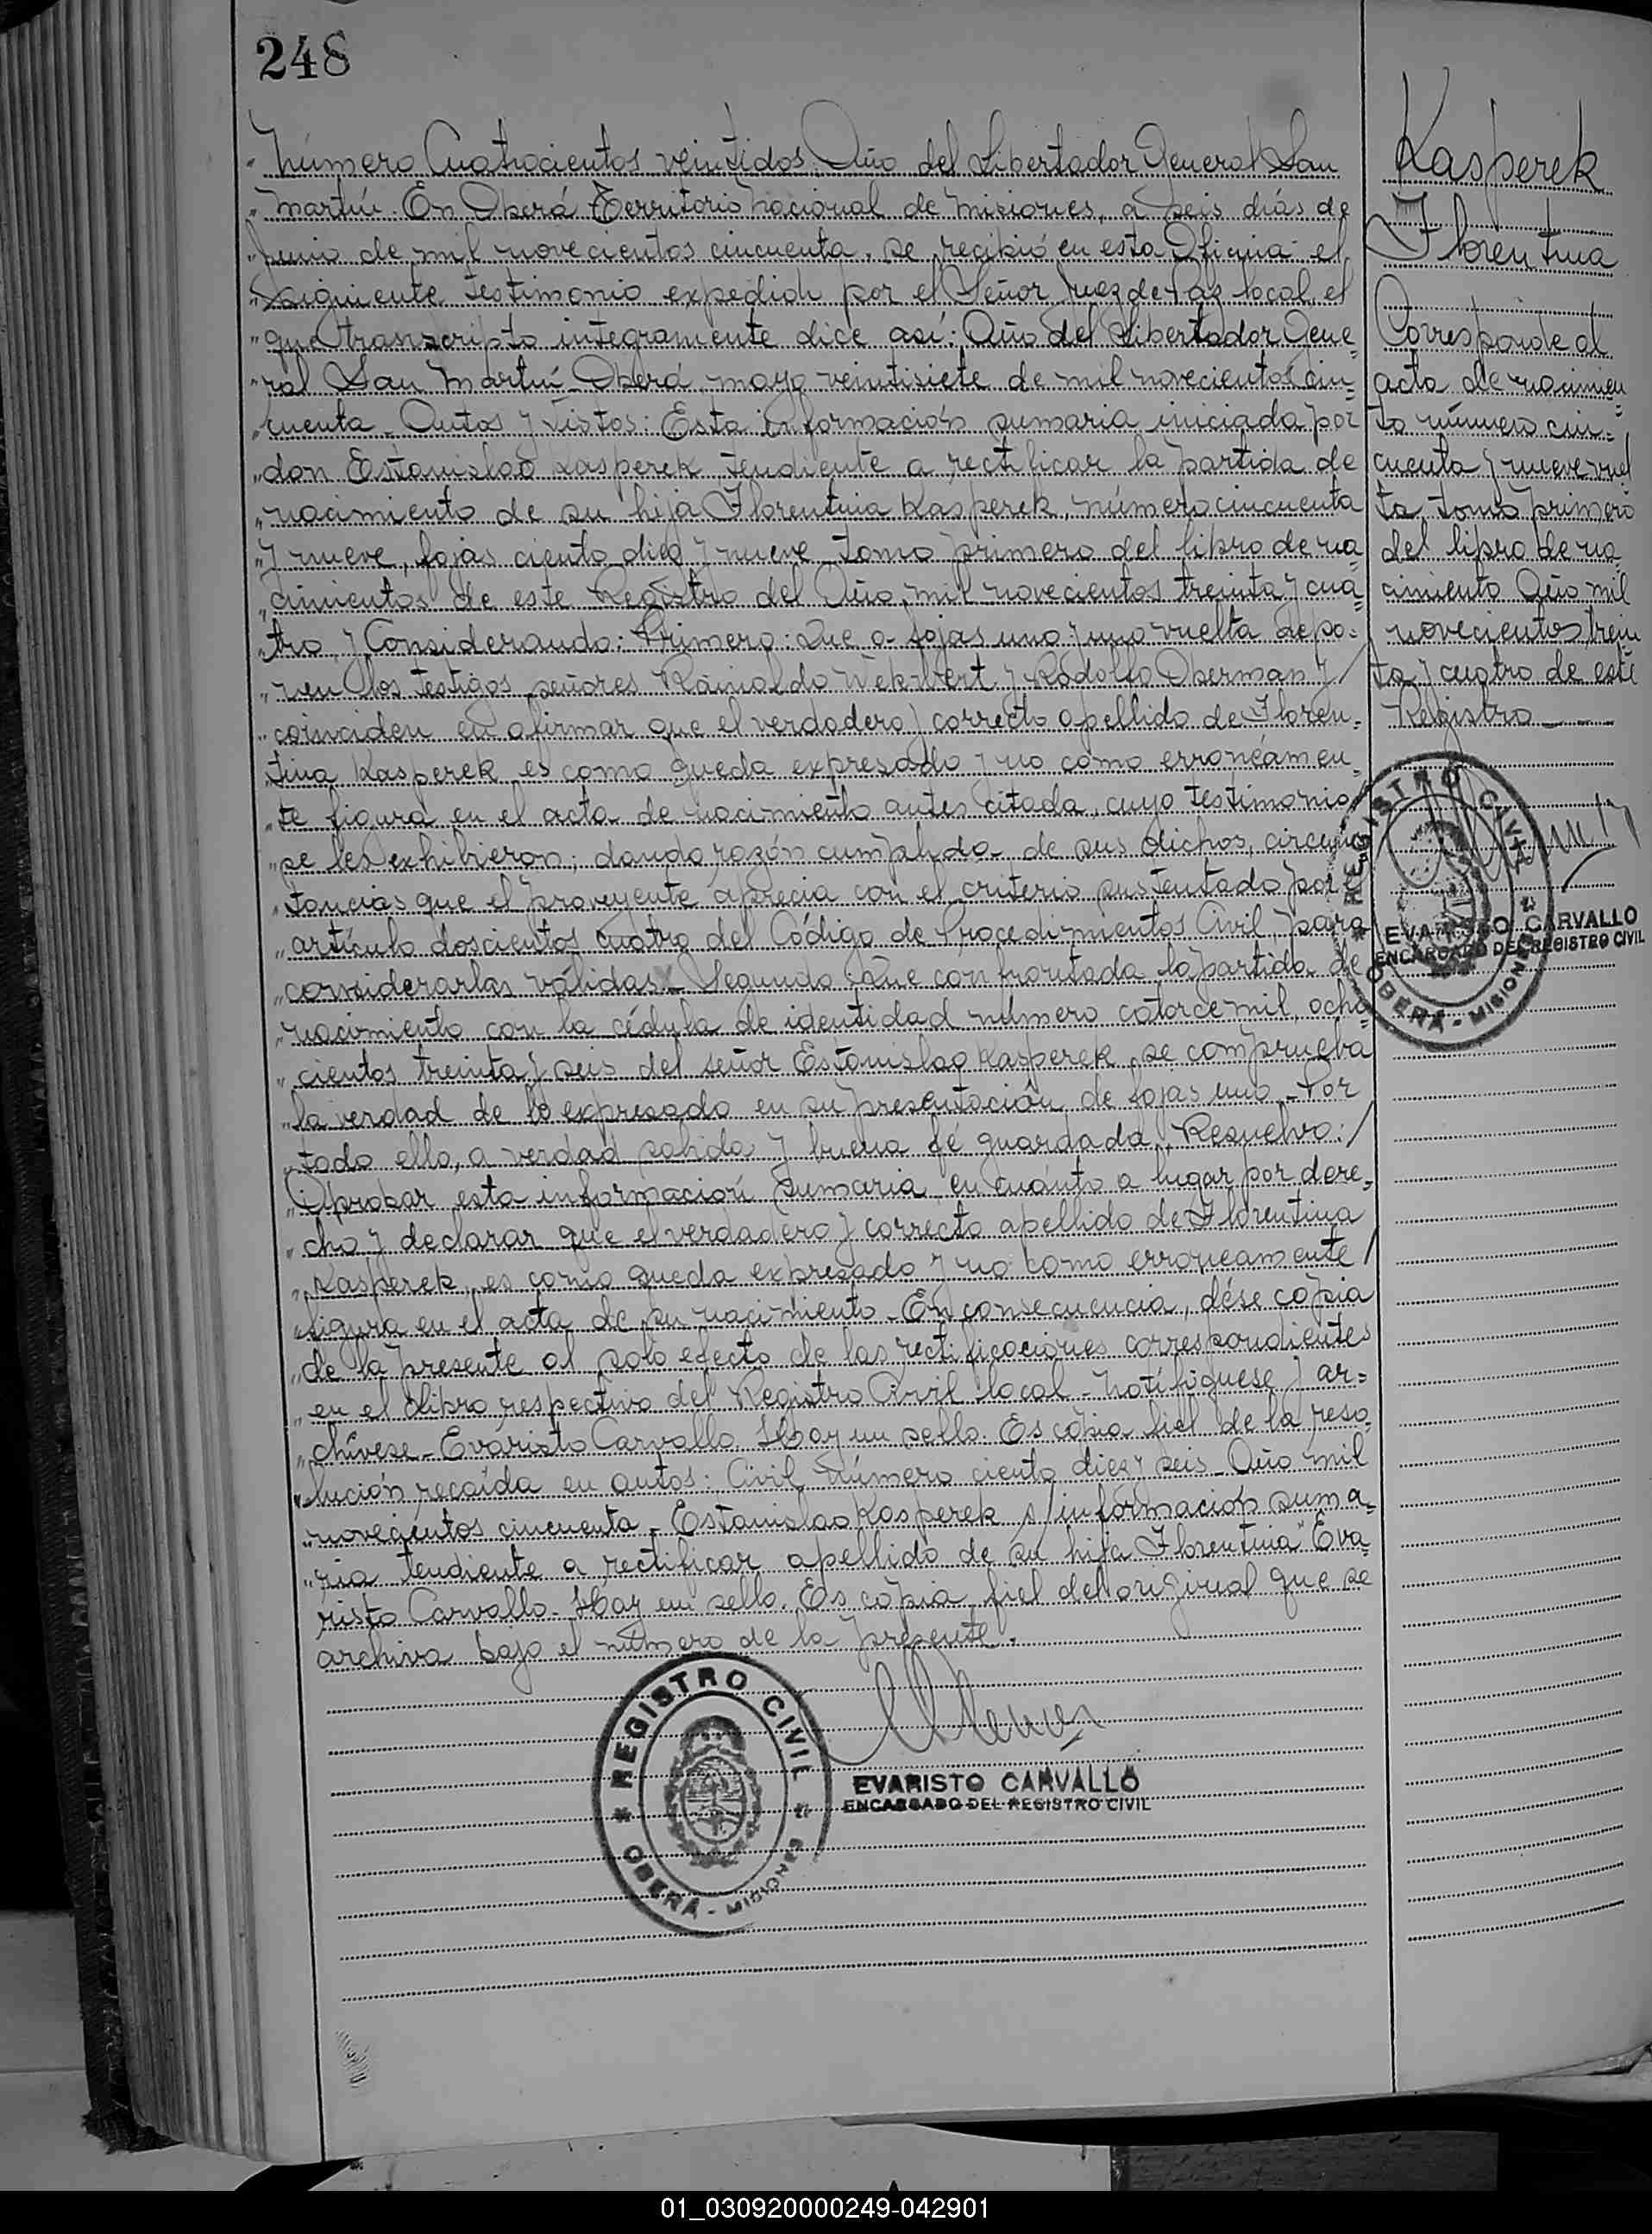 248
Número Cuatrocientos veintidos. Año del Libertador General San
Martín. En Oberá Territorio Nacional de Misiones, a seis diás de
Junio de mil novecientos cincuenta, se recibió en esta Oficina el
siguiente testimonio expedido por el Señor Juez de Paz local, el
que transcripto integramente dice así: Año del Libertador Gene=
ral San Martín Oberá mayo veintisiete de mil novecientos cin=
cuenta - Autos y Vistos: Esta información sumaria iniciada por
don Estanislao Kasperek tendiente a rectificar la partida de
nacimiento de su hija Florentina Kasperek, número cincuenta
y nueve, fojas ciento diez y nueve tomo primero del libro de na
cimientos de este Registro del Año mil novecientos treinta y cua=
tro, y Considerando: Primero: Que a fojas uno y uno vuelta depo=
nen los testigos señores Rainoldo Wekwert y Rodolfo Oberman y/
coinciden en afirmar que el verdadero y correcto apellido de Floren=
tina Kasperek es como queda expresado y no como erroneámen=
te figura en el acta de nacimiento antes citada, cuyo testimonio
se les exhibieron; dando razón cumplida de sus dichos, circuns
tancias que el proveyente aprecia con el criterio sustentado por
artículo doscientos cuatro del Código de Procedimientos Civil, para
considerarlas válidas - Segundo: Que confrontada la partida de
nacimiento con la cédula de identidad número catorce mil, ocho
cientos treinta y seis del señor Estanislao Kasperek, se comprueba
la verdad de lo expresado en su presentación de fojas uno - Por
todo ello, a verdad sabida y buena fé guardada, Resuelvo:/
Aprobar esta información sumaria en cuánto a lugar por dere=
cho y declarar que el verdadero y correcto apellido de Florentina
Kasperek, es como queda expresado y no como erroneamente/
figura en el acta de su nacimiento - En consecuencia, dése copia
de la presente al solo efecto de las rectificaciones correspondientes
en el libro respectivo del Registro Civil local - Notifíquese y ar=
chívese - Evaristo Carvallo. Hay un sello. Es copia fiel de la reso=
lución recaída en autos: Civil número ciento diez y seis - Año mil
novecientos cincuenta - Estanislao Kasperek s/información suma=
ria tendiente a rectificar apellido de su hija Florentina" Eva=
risto Carvallo - Hay un sello. Es copia fiel del original que se
archiva bajo el número de la presente.
REGISTRO CIVIL
OBERÁ - MISIONES
EVARISTO CARVALLO
ENCARGADO DEL REGISTRO CIVIL
Kasperek
Florentina
Corresponde al
acta de nacimien=
to número cin=
cuenta y nueve vuel
ta tomo primero
del libro de na
cimiento Año mil
novecientos trein
ta y cuatro de este
Registro
REGISTRO CIVIL
EVARISTO CARVALLO
ENCARGADO DEL REGISTRO CIVIL
OBERÁ - MISIONES
01_030920000249-042901